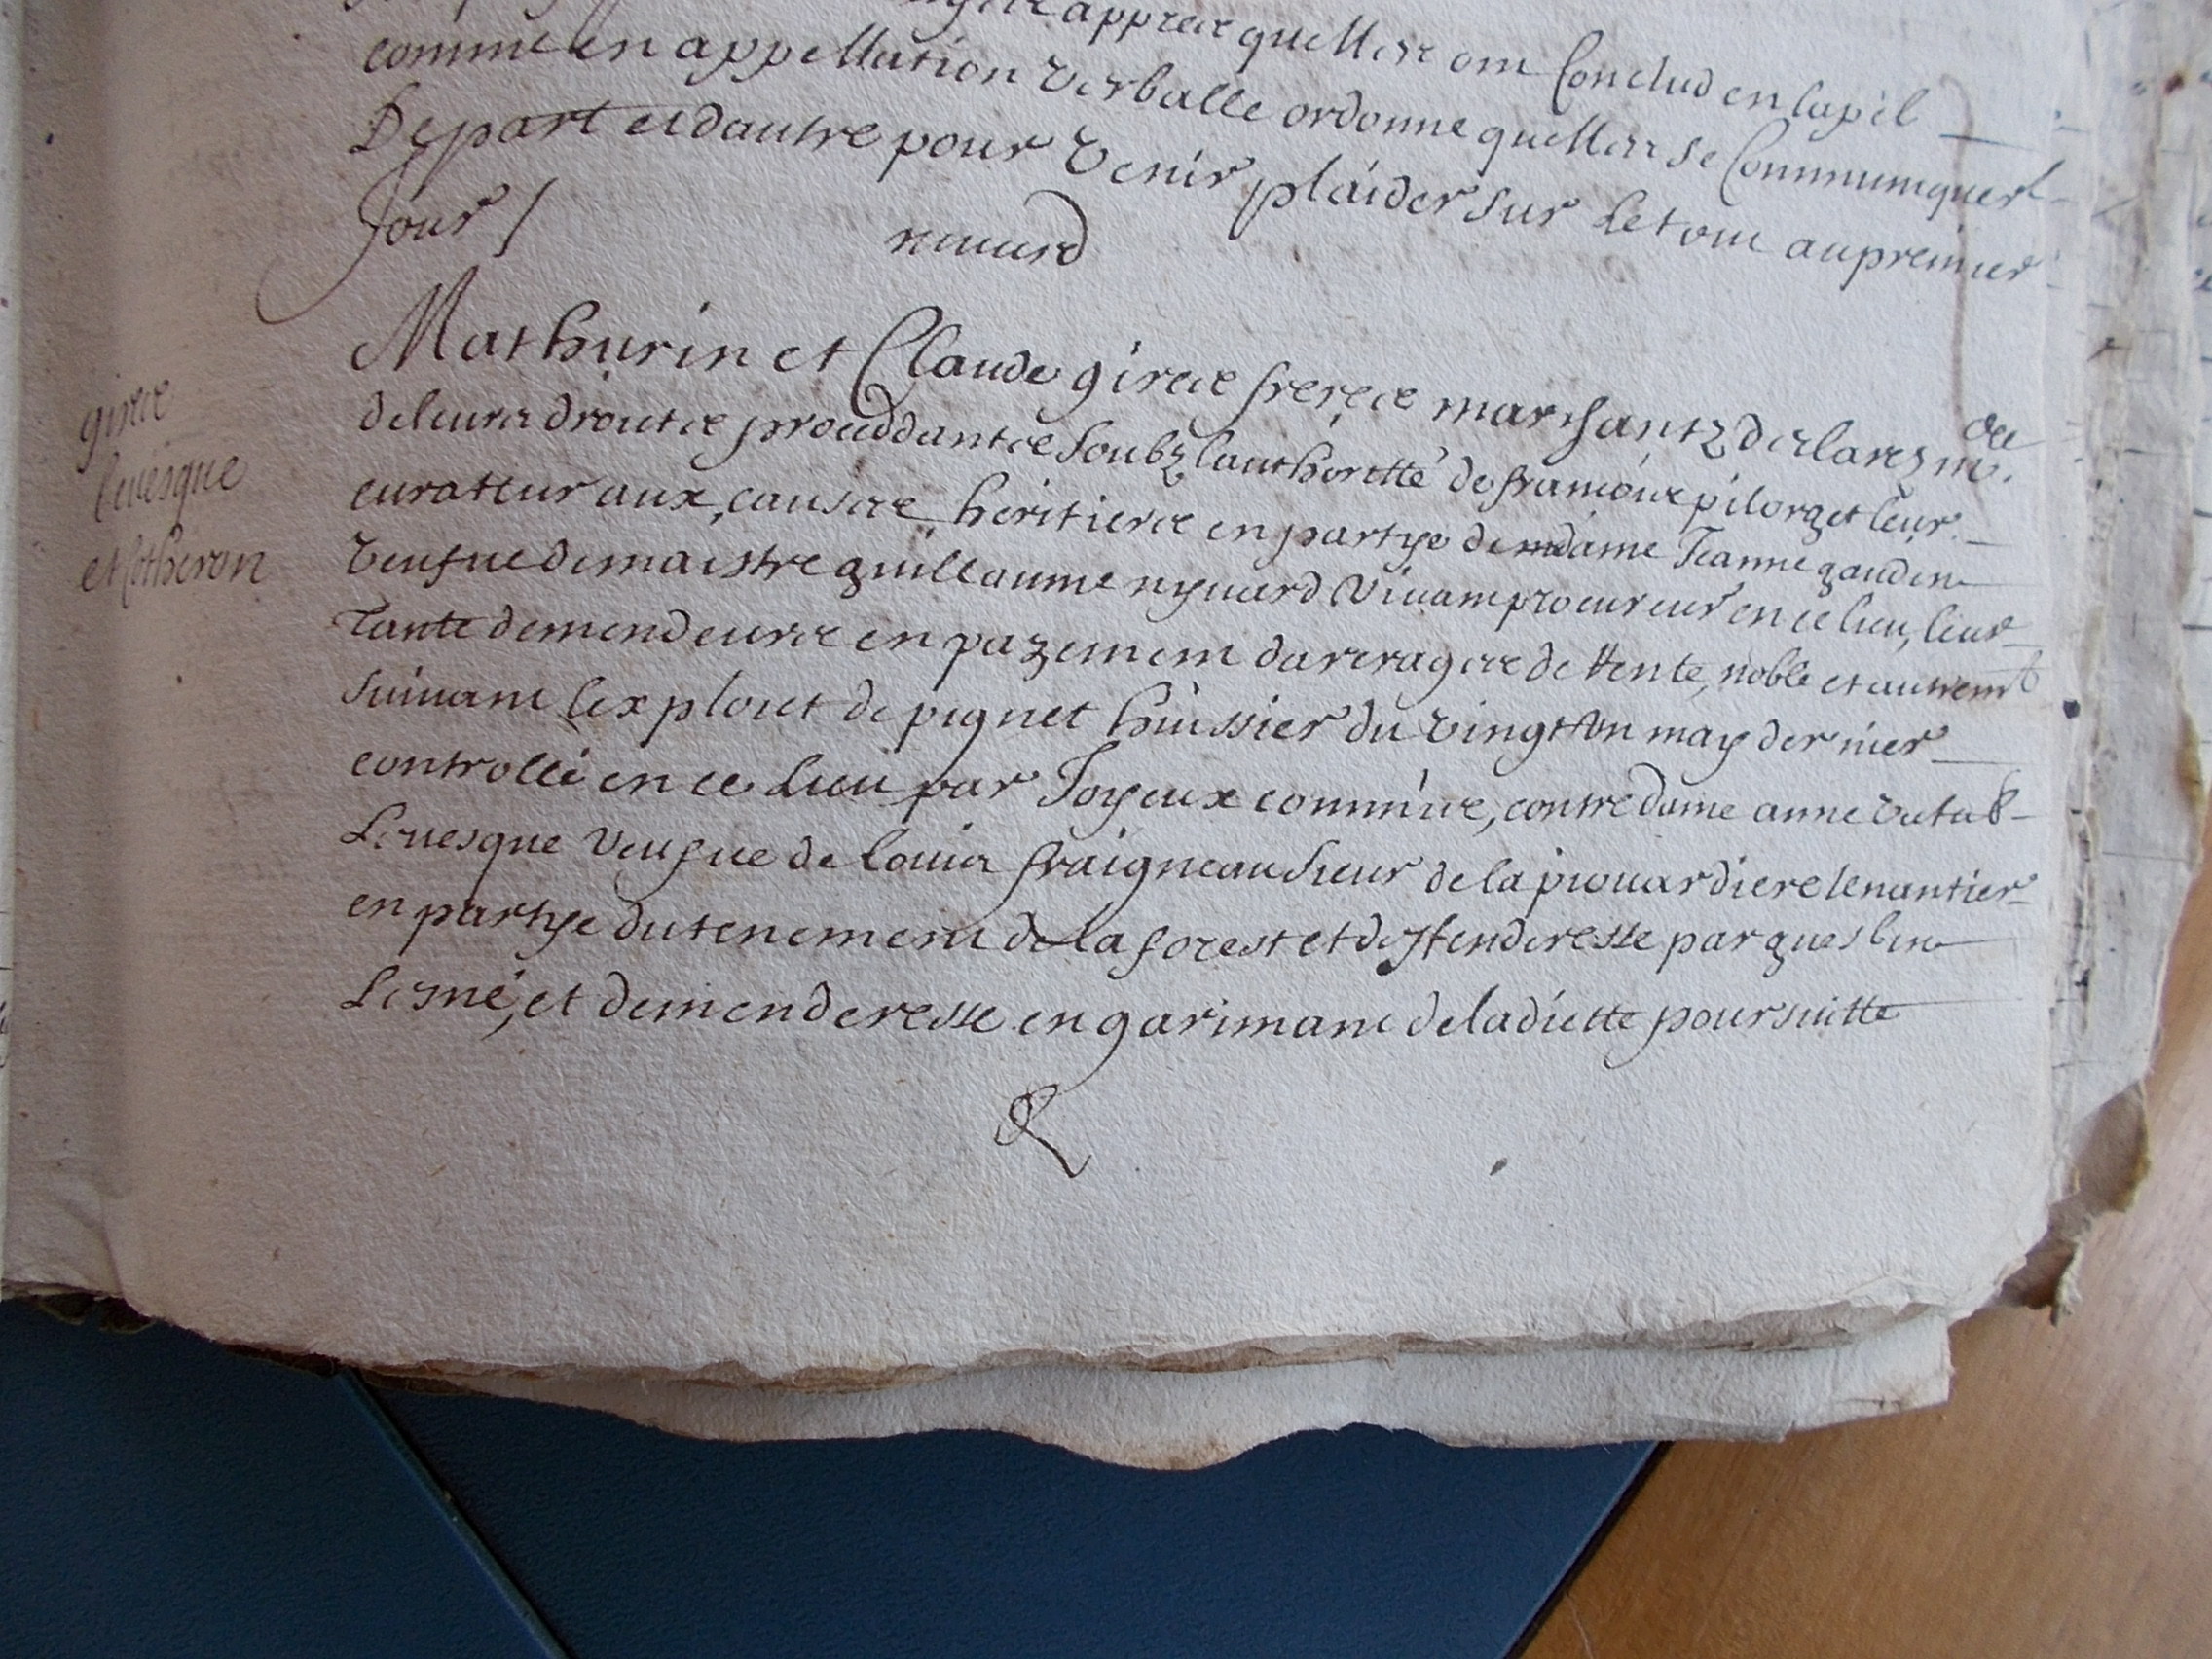 apprés quelles ont Conclud en lapel
comme en appellation verballe ordonne quelles se Communiquert
De part et dautre pour Venir plaider sur Le tout au premier
Jour /
renard
Mathurin et Claude gires freres marchantz declarez me
girés
levesque
et Cotheron
de leurs droictes proceddantes soubz lauthoritté de francois pilorget leur
curateur aux causes, heritiers en partye de dame Jeanne gaudin
Veufue de maistre guillaume nyuard vivant procureur en ce lieu, leur
Tante demendeurs en pazement dareragres de Rente, noble et autremt
suivant lexploict de pignet huissier du vingt Un may dernier
controllé en ce Lieu par Joyeux commis, contre dame anne
Levesque Veufue de louis fraigneau sieur de la piouardiere tenantier
en partye du tenement de la forest et deffenderesse par gueslin
Lesné, et demenderesse en garimant de ladictte poursuitte